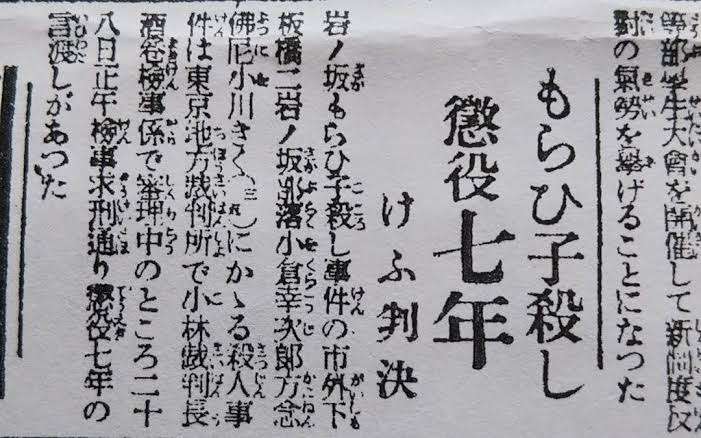 等部學生大會を開催して新制度反
對の氣勢を擧げることになつた
もらひ子殺し
懲役七年
けふ判決
岩ノ坂もらひ子殺し事件の市外下
板橋二岩ノ坂部落小倉幸次郎方念
佛尼小川きくにかゝる殺人事
件は東京地方裁判所で小林裁判長
酒谷檢事係で審理中のところ二十
八日正午檢事求刑通り懲役七年の
言渡しがあつた